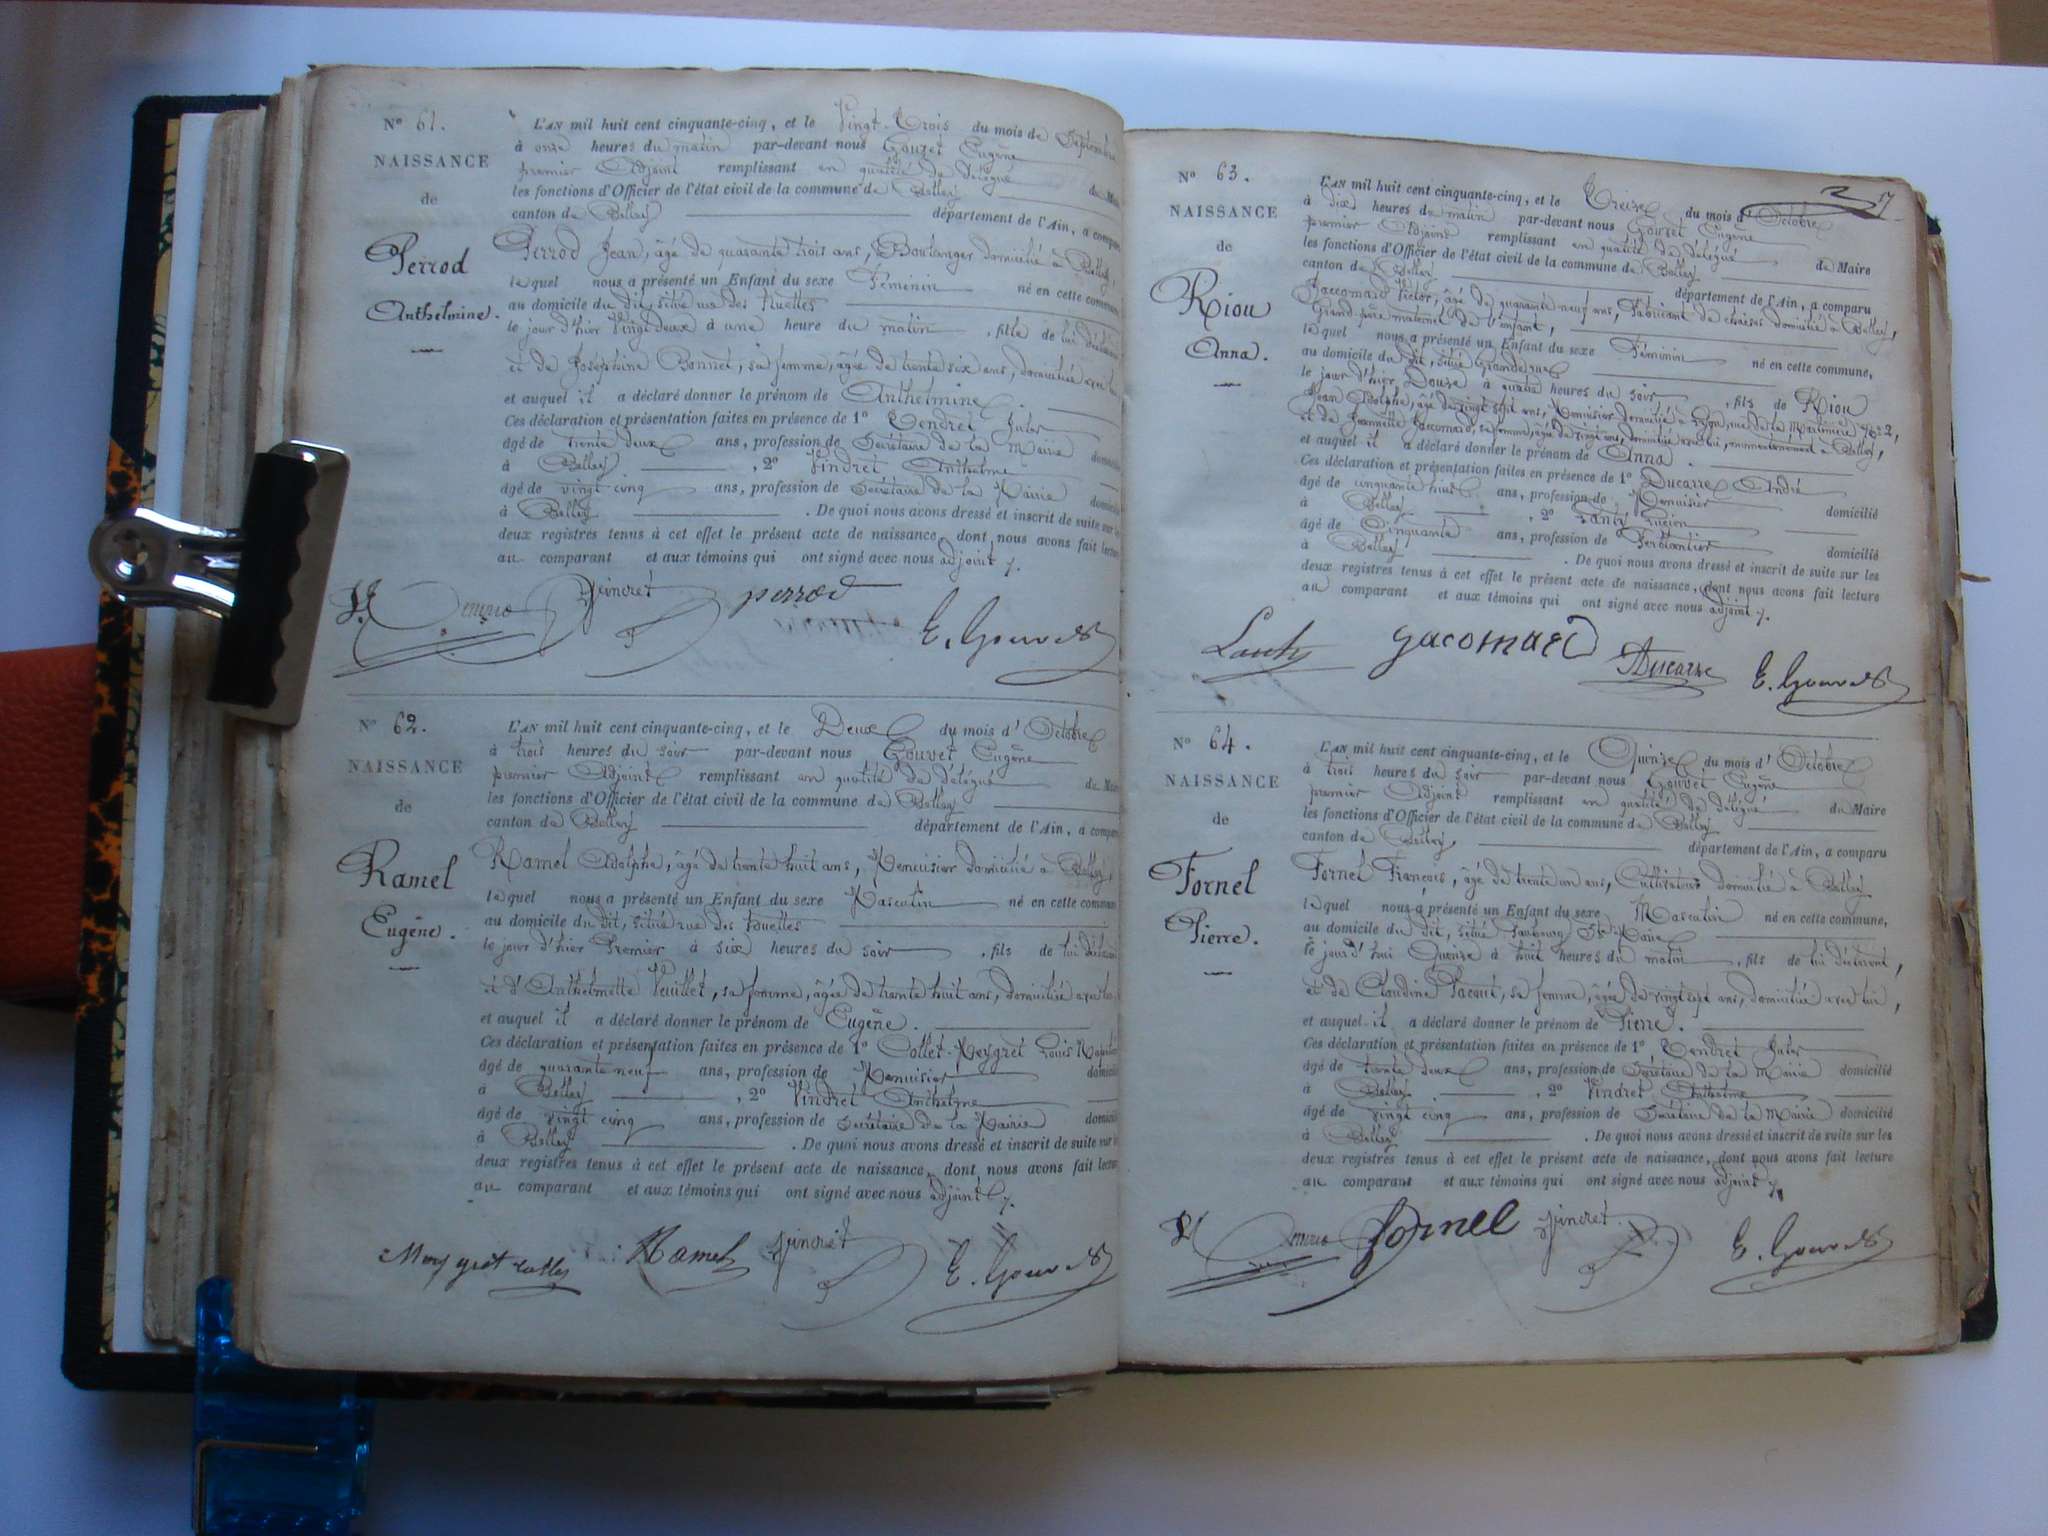 N° 61.
NAISSANCE
de
Perrod
Anthelmine.
L'AN mil huit cent cinquante-cinq, et le Vingt-Trois du mois de Septembre
à onze heures du matin par-devant nous Gouvet Eugène
premier Adjoint remplissant en qualité de délégué du
les fonctions d'Officier de l'état civil de la commune de Belley
canton de Belley département de l'Ain, a
Perrod Jean, âgé de quarante trois ans, Boulanger domicilié à Belley,
lequel nous a présenté un Enfant du sexe Féminin né en cette
au domicile du dit, situé rue des
le jour d'hier Vingt deux à une heure du matin, fille de lui
et de Joséphine Bonnet, sa femme, âgée de trente six ans, domiciliée avec
et auquel il a déclaré donner le prénom de Anthelmine.
Ces déclaration et présentation faites en présence de 1° Tendret Jules
âgé de trente deux ans, profession de Secrétaire de la Mairie
à Belley, 2° Vindret Anthelme
âgé de vingt cinq ans, profession de Secrétaire de la Mairie
à Belley. De quoi nous avons dressé et inscrit de suite sur
deux registres tenus à cet effet le présent acte de naissance, dont nous avons fait
au comparant et aux témoins qui ont signé avec nous adjoint
Vindret perrod
E. Gouvet
N° 62.
NAISSANCE
de
Ramel
Eugène.
L'AN mil huit cent cinquante-cinq, et le Deux du mois d'Octobre
à trois heures du soir par-devant nous Gouvet Eugène
premier Adjoint remplissant en qualité de délégué du
les fonctions d'Officier de l'état civil de la commune de Belley
canton de Belley département de l'Ain, a
Ramel Adolphe, âgé de trente huit ans, Menuisier domicilié à Belley,
lequel nous a présenté un Enfant du sexe Masculin né en cette
au domicile du dit, situé rue des
le jour d'hier Premier à six heures du soir, fils de lui
et d'Anthelmette Veuillet, sa femme, âgée de trente huit ans, domiciliée avec
et auquel il a déclaré donner le prénom de Eugène.
Ces déclaration et présentation faites en présence de 1° Collet-Meygret Louis
âgé de quarante neuf ans, profession de Menuisier
à Belley, 2° Vindret Anthelme
âgé de vingt cinq ans, profession de Secrétaire de la Mairie
à Belley. De quoi nous avons dressé et inscrit de suite sur
deux registres tenus à cet effet le présent acte de naissance, dont nous avons fait
au comparant et aux témoins qui ont signé avec nous adjoint
Ramel Vindret E. Gouvet
N° 63.
NAISSANCE
de
Riou
Anna.
L'AN mil huit cent cinquante-cinq, et le Treize du mois d'Octobre
à dix heures du matin par-devant nous Gouvet Eugène
premier Adjoint remplissant en qualité de délégué de Maire
les fonctions d'Officier de l'état civil de la commune de Belley
canton de Belley département de l'Ain, a comparu
Jaccomard Victor, âgé de quarante neuf ans, Fabricant de chaises domicilié à Belley,
Grand-père maternel de l'enfant,
lequel nous a présenté un Enfant du sexe Féminin né en cette commune,
au domicile du dit, situé Grande rue
le jour d'hier Douze à quatre heures du soir, fils de Riou
Jean Adolphe, âgé de vingt sept ans, Menuisier domicilié à Lyon, rue de la Martinière N° 2,
et de Jeannette Jaccomard, sa femme, âgée de vingt ans, domiciliée avec lui, momentanément à Belley,
et auquel il a déclaré donner le prénom de Anna.
Ces déclaration et présentation faites en présence de 1° Ducarre André
âgé de cinquante huit ans, profession de Menuisier domicilié
à Belley, 2° Lanty Lucien
âgé de Cinquante ans, profession de Ferblantier domicilié
à Belley. De quoi nous avons dressé et inscrit de suite sur les
deux registres tenus à cet effet le présent acte de naissance, dont nous avons fait lecture
au comparant et aux témoins qui ont signé avec nous adjoint
Lanty Jacomard Ducarre E. Gouvet
N° 64.
NAISSANCE
de
Fornel
Pierre.
L'AN mil huit cent cinquante-cinq, et le Quinze du mois d'Octobre
à trois heures du soir par-devant nous Gouvet Eugène
premier Adjoint remplissant en qualité de délégué du Maire
les fonctions d'Officier de l'état civil de la commune de Belley
canton de Belley, département de l'Ain, a comparu
Fornel François, âgé de trente un ans, Cultivateur domicilié à Belley
lequel nous a présenté un Enfant du sexe Masculin né en cette commune,
au domicile du dit, situé faubourg
le jour d'hui Quinze à huit heures du matin, fils de lui déclarant,
et de Claudine sa femme, âgée de vingt sept ans, domiciliée avec lui,
et auquel il a déclaré donner le prénom de Pierre.
Ces déclaration et présentation faites en présence de 1° Tendret Jules
âgé de trente deux ans, profession de Secrétaire de la Mairie domicilié
à Belley, 2° Vindret Anthelme
âgé de vingt cinq ans, profession de Secrétaire de la Mairie domicilié
à Belley. De quoi nous avons dressé et inscrit de suite sur les
deux registres tenus à cet effet le présent acte de naissance, dont nous avons fait lecture
au comparant et aux témoins qui ont signé avec nous adjoint
fornel Vindret E. Gouvet